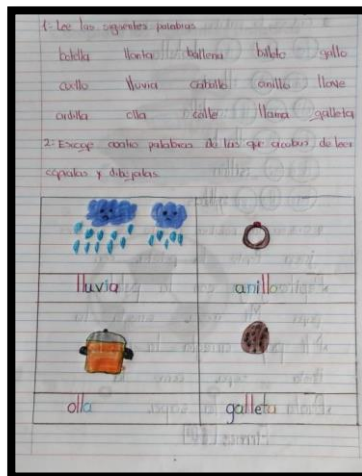 1- Lee las siguientes palabras
botella llanta ballena billete gallo
cuello lluvia caballo anillo llave
ardilla olla calle llama galleta
2- Escoge cuatro palabras de las que acabas de leer
cópialas y dibújalas.
lluvia anillo
olla galleta